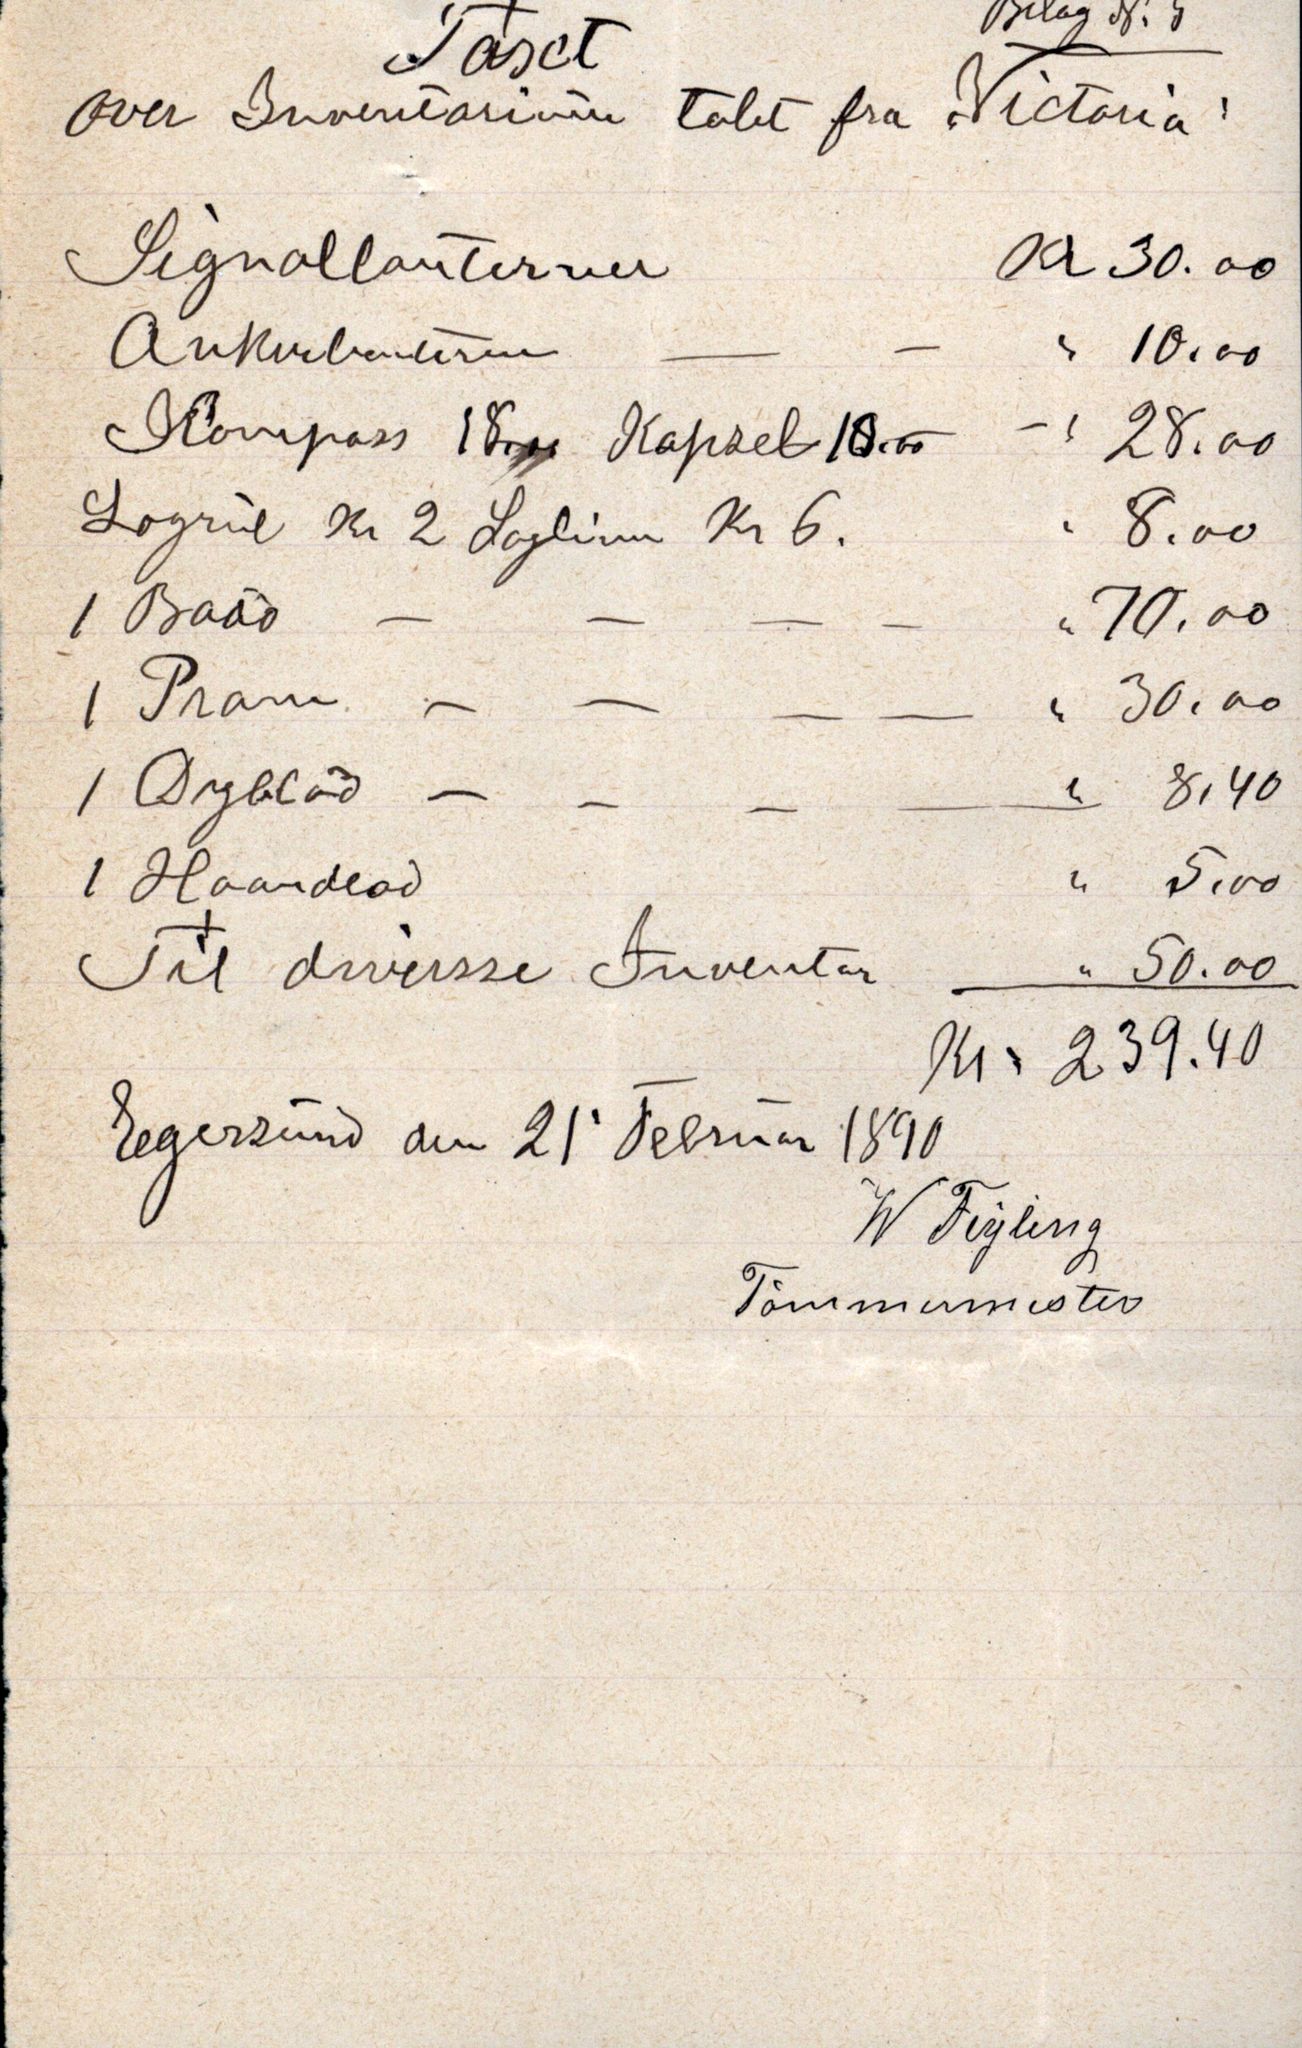 Bilag N. 5
Taxt
over Inventarium tabt fra "Victoria"
Signallanterner Kr 30.00
Ankerlanterne — — " 10.00
Kompass 18.00 Kapsel 10.00 — " 28.00
Logrul Kr 2 Logline Kr 6. " 8.00
1 Baad — — — — " 70.00
1 Pram — — — — " 30.00
1 Dyblod — — — — " 8.40
1 Haandlod " 5.00
Til diversse Inventar " 50.00
Kr. 239.40
Egersund den 21 Februar 1890
W Fÿling
Tömmermester